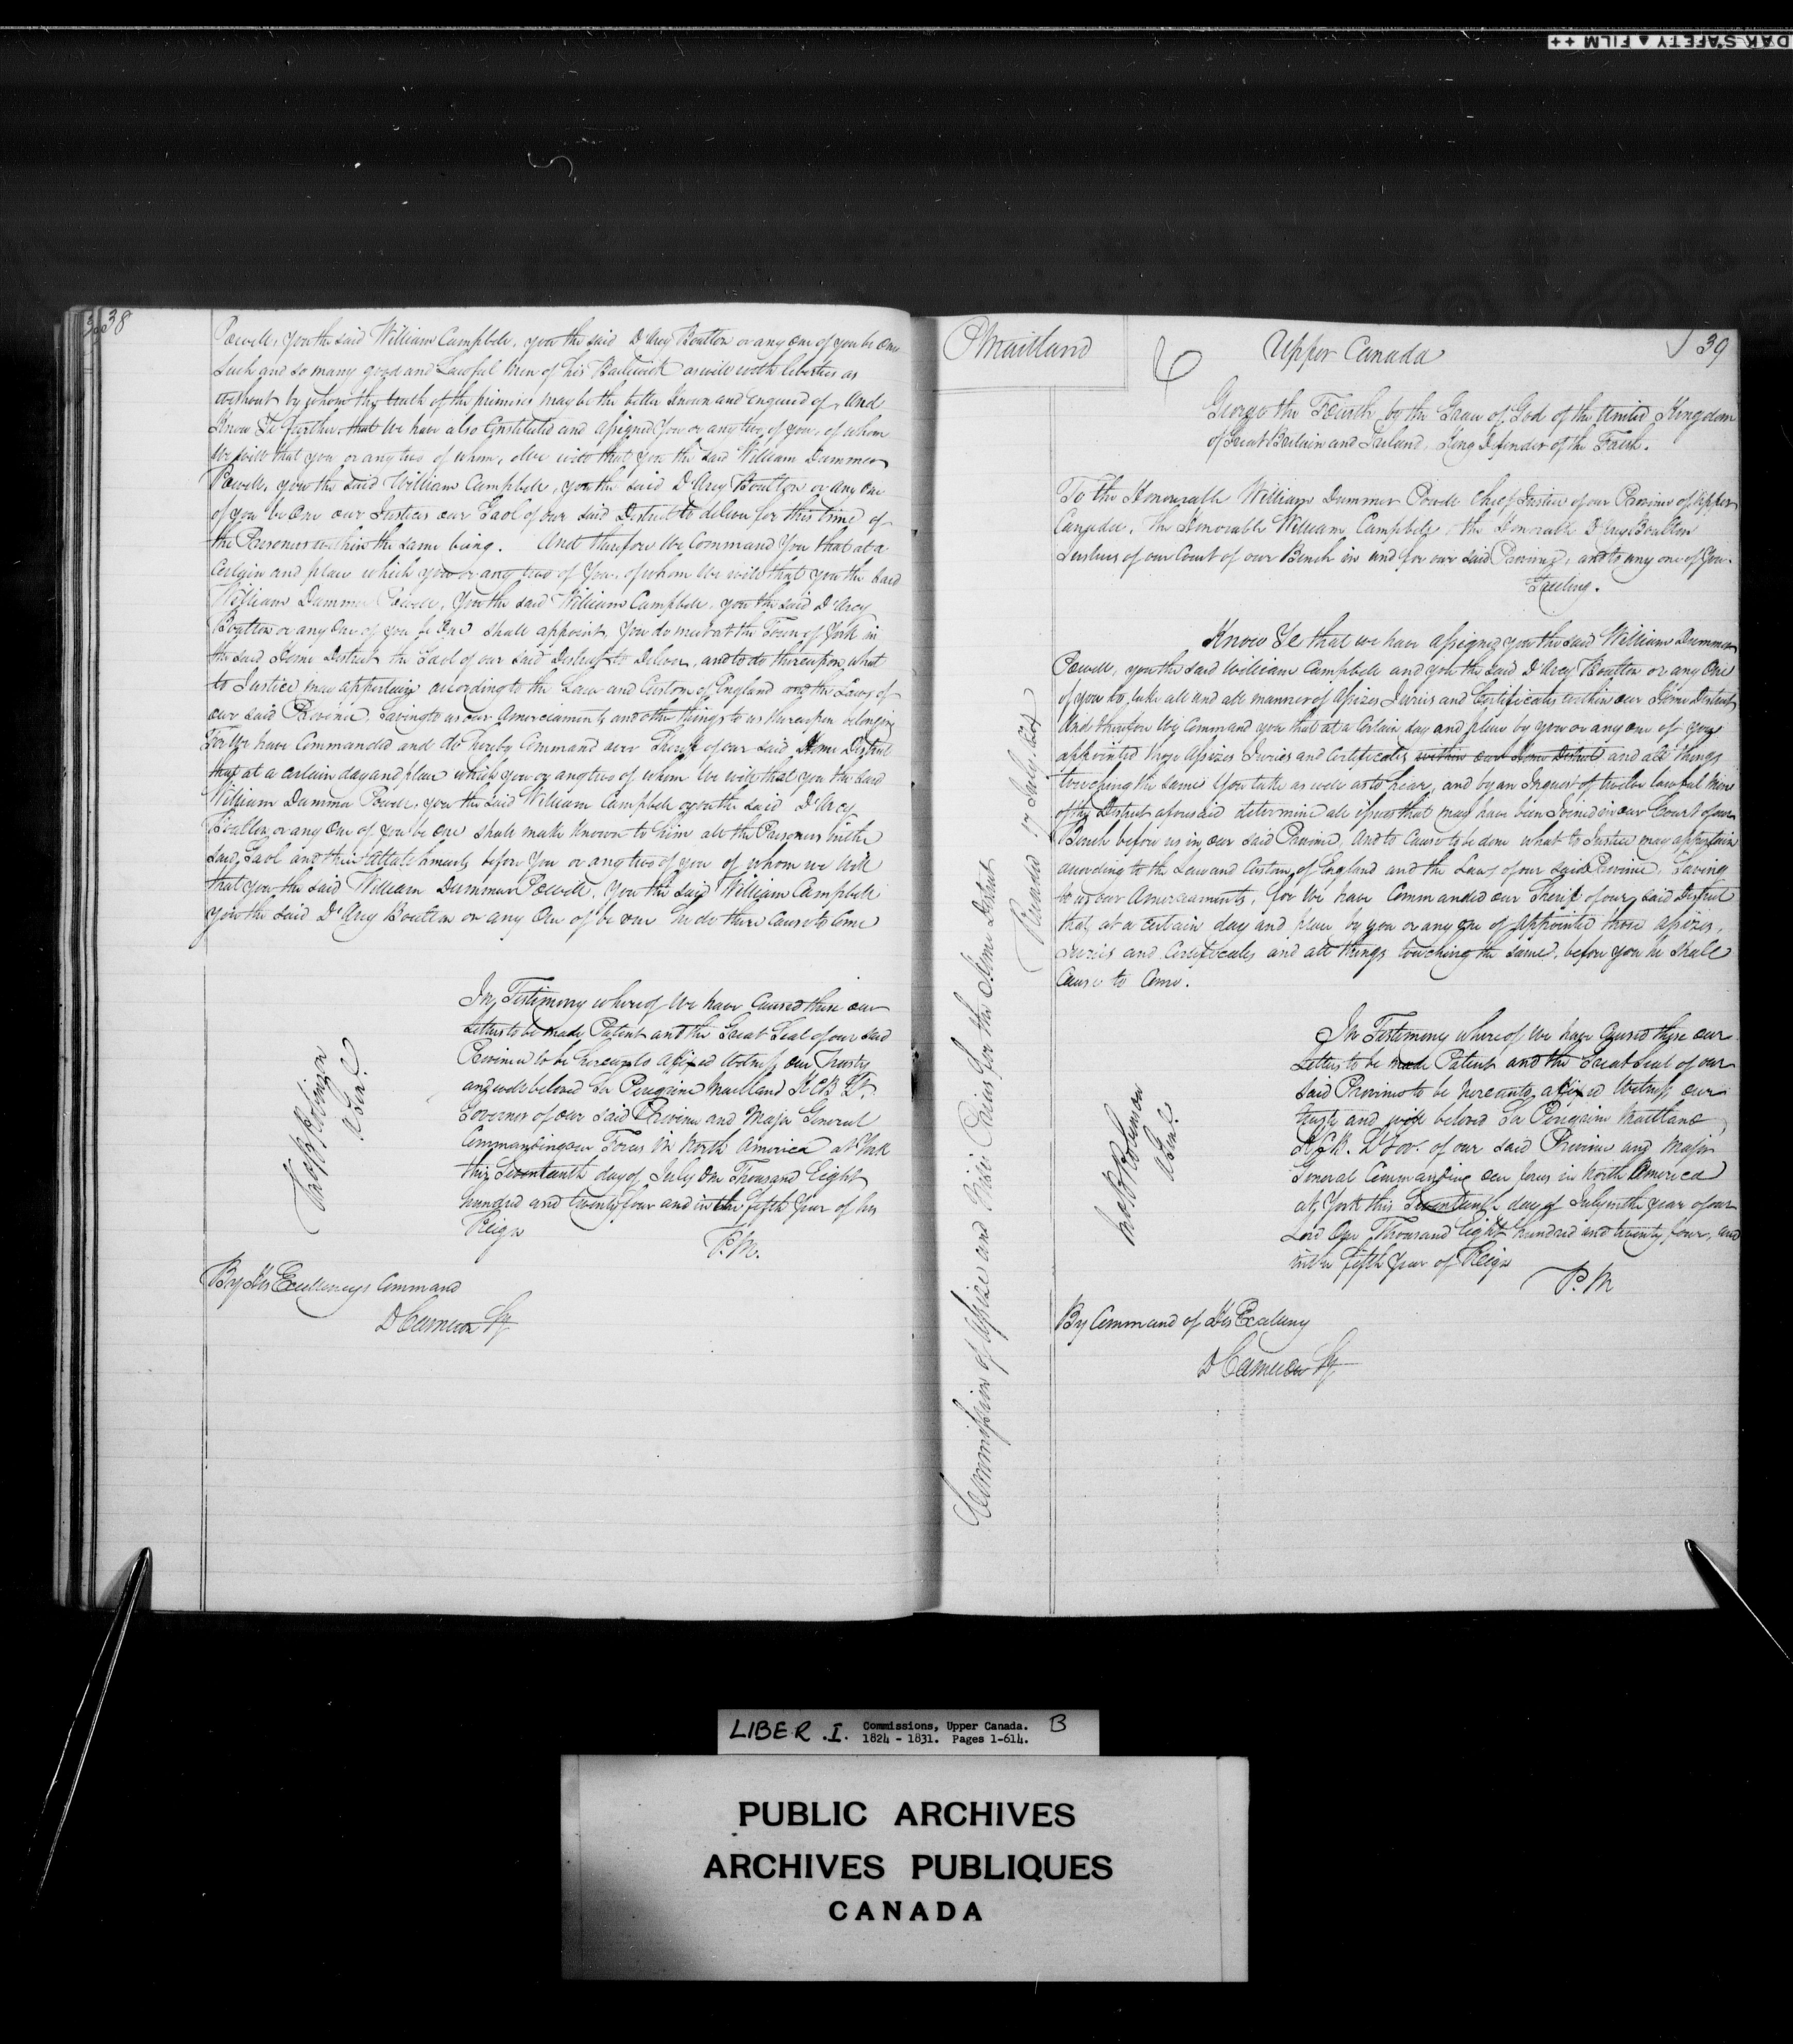 38
Powell, you the said William Campbell, you the said D'Arcy Boulton or any one of you be one
Such and so many good and Lawful Men of his Bailiwick as well with liberties as
without by whom the truth of the premises may be the better known and enquired of, And
Know Ye further that We have also Constituted and assigned You or any two of you, of whom
We will that you or any two of whom, We will that you the said William Dummer
Powell, you the said William Campbell, you the said D'Arcy Boulton or any One
of you be One our Justices our Gaol of our said District to deliver for this time of
the Prisoners within the same being. And therefore We Command You that at a
Certain and place which you or any two of You, of whom We will that you the said
William Dummer Powell, You the said William Campbell, you the said D'Arcy
Boulton or any One of you be One shall appoint, You do meet at the Town of York in
the said Home District the Gaol of our said District to Deliver, and to do thereupon what
to Justice may appertain according to the Law and Custom of England and the Laws of
our said Province. Saving to us our Amerciaments and other things to us thereupon belonging
For We have Commanded and do hereby Command our Sheriff of our said Home District
that at a certain day and place which you or any two of whom We will that you the said
William Dummer Powell, you the said William Campbell you the said D'Arcy
Boulton or any One of you be One shall make known to him all the Prisoners in the
said Gaol and their attatchments before You or any two of you of whom we Will
that you the said William Dummer Powell, You the said William Campbell
you the said D'Arcy Boulton or any One of be one he do there Cause to Come
In Testimony whereof We have Caused these our
Letters to be made Patent and the Great Seal of our said
Province to be hereunto affixed Witness our Trusty
and well beloved Sir Peregrine Maitland K.C.B. Lt.
Governor of our said Province and Major General
Commanding our Forces in North America at York
this Seventeenth day of July One Thousand Eight
hundred and twenty four and in the fifth Year of his
Reign
P.M.
By His Excellencys Command
D Cameron Sy
P Maitland
6
Upper Canada
39
George the Fourth by the Grace of God of the United Kingdom
of Great Britain and Ireland, King Defender of the Faith.
To the Honourable William Dummer Powell Chief Justice of our Province of Upper
Canada, The Honorable William Campbell the Honorable D'Arcy Boulton
Justices of our Court of our Bench in and for our said Province, and to any one of You.
Greeting.
Know Ye that we have assigned you the said William Dummer
Powell, you the said William Campbell and you the said D'Arcy Boulton or any One
of you to take all and all manner of Assizes Juries and Certificates within our Home District
And therefore We Command you that at a Certain day and place by you or any one of you
appointed those Assizes Juries and Certificates within our Home District and all things
touching the same You take as well as to hear, and by an Inquest of twelve lawful Men
of the District aforesaid determine all issues that may have been Joined in our Court of our
Bench before us in our said Province, And to Cause to be done what to Justice may appertain
according to the Law and Custom of England and the Laws of our said Province, Saving
to us our Amerciaments, for We have Commanded our Sheriff of our said District
that, at a certain day and place by you or any one of Appointed those Assizes,
Juries and Certificates and all things touching the same, before you he shall
Cause to Come.
In Testimony whereof We have Caused these our
Letters to be made Patent and the Great Seal of our
said Province to be hereunto affixed Witness our
trusty and well beloved Sir Peregrine Maitland
K.C.B. Lt Gov. of our said Province and Major
General Commanding our forces in North America
at York this Seventeenth day of July in the year of our
Lord One Thousand Eight hundred and twenty four, and
in the fifth Year of Reign
P.M
By Command of His Excellency
D Cameron Sy
Commission of Assize and Nisi Prius for the Home District
Recorded 17 July 1824
LIBER .I. Commissions, Upper Canada. B
1824 - 1831. Pages 1-614.
PUBLIC ARCHIVES
ARCHIVES PUBLIQUES
CANADA